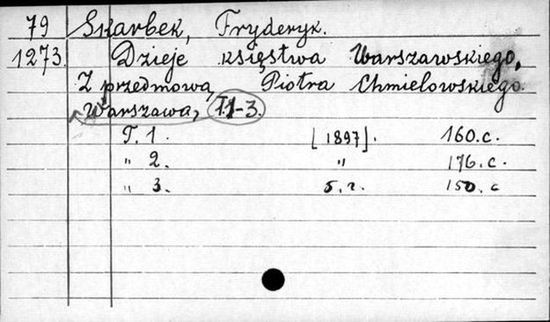 79 Skarbek, Fryderyk.
1273. Dzieje księstwa Warszawskiego,
Z przedmową Piotra Chmielowskiego.
Warszawa, T.1-3.
T. 1. [1897]. 160.c.
" 2. " 176.c.
" 3. б.г. 150.c